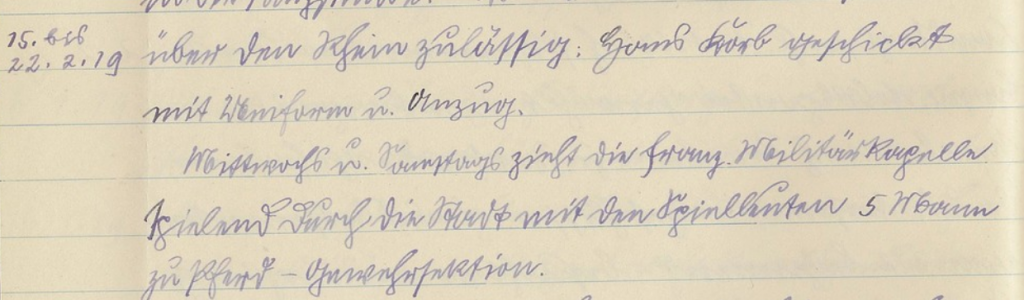 15. bis
22. 2. 19
über den Rhein zulässig. Hans Korb geschickt
mit Uniform u. Anzug.
Mittwochs u. Samstags zieht die franz. Militärkapelle
spielend durch die Stadt mit den Spielleuten 5 Mann
zu Pferd – Gewehrsektion.